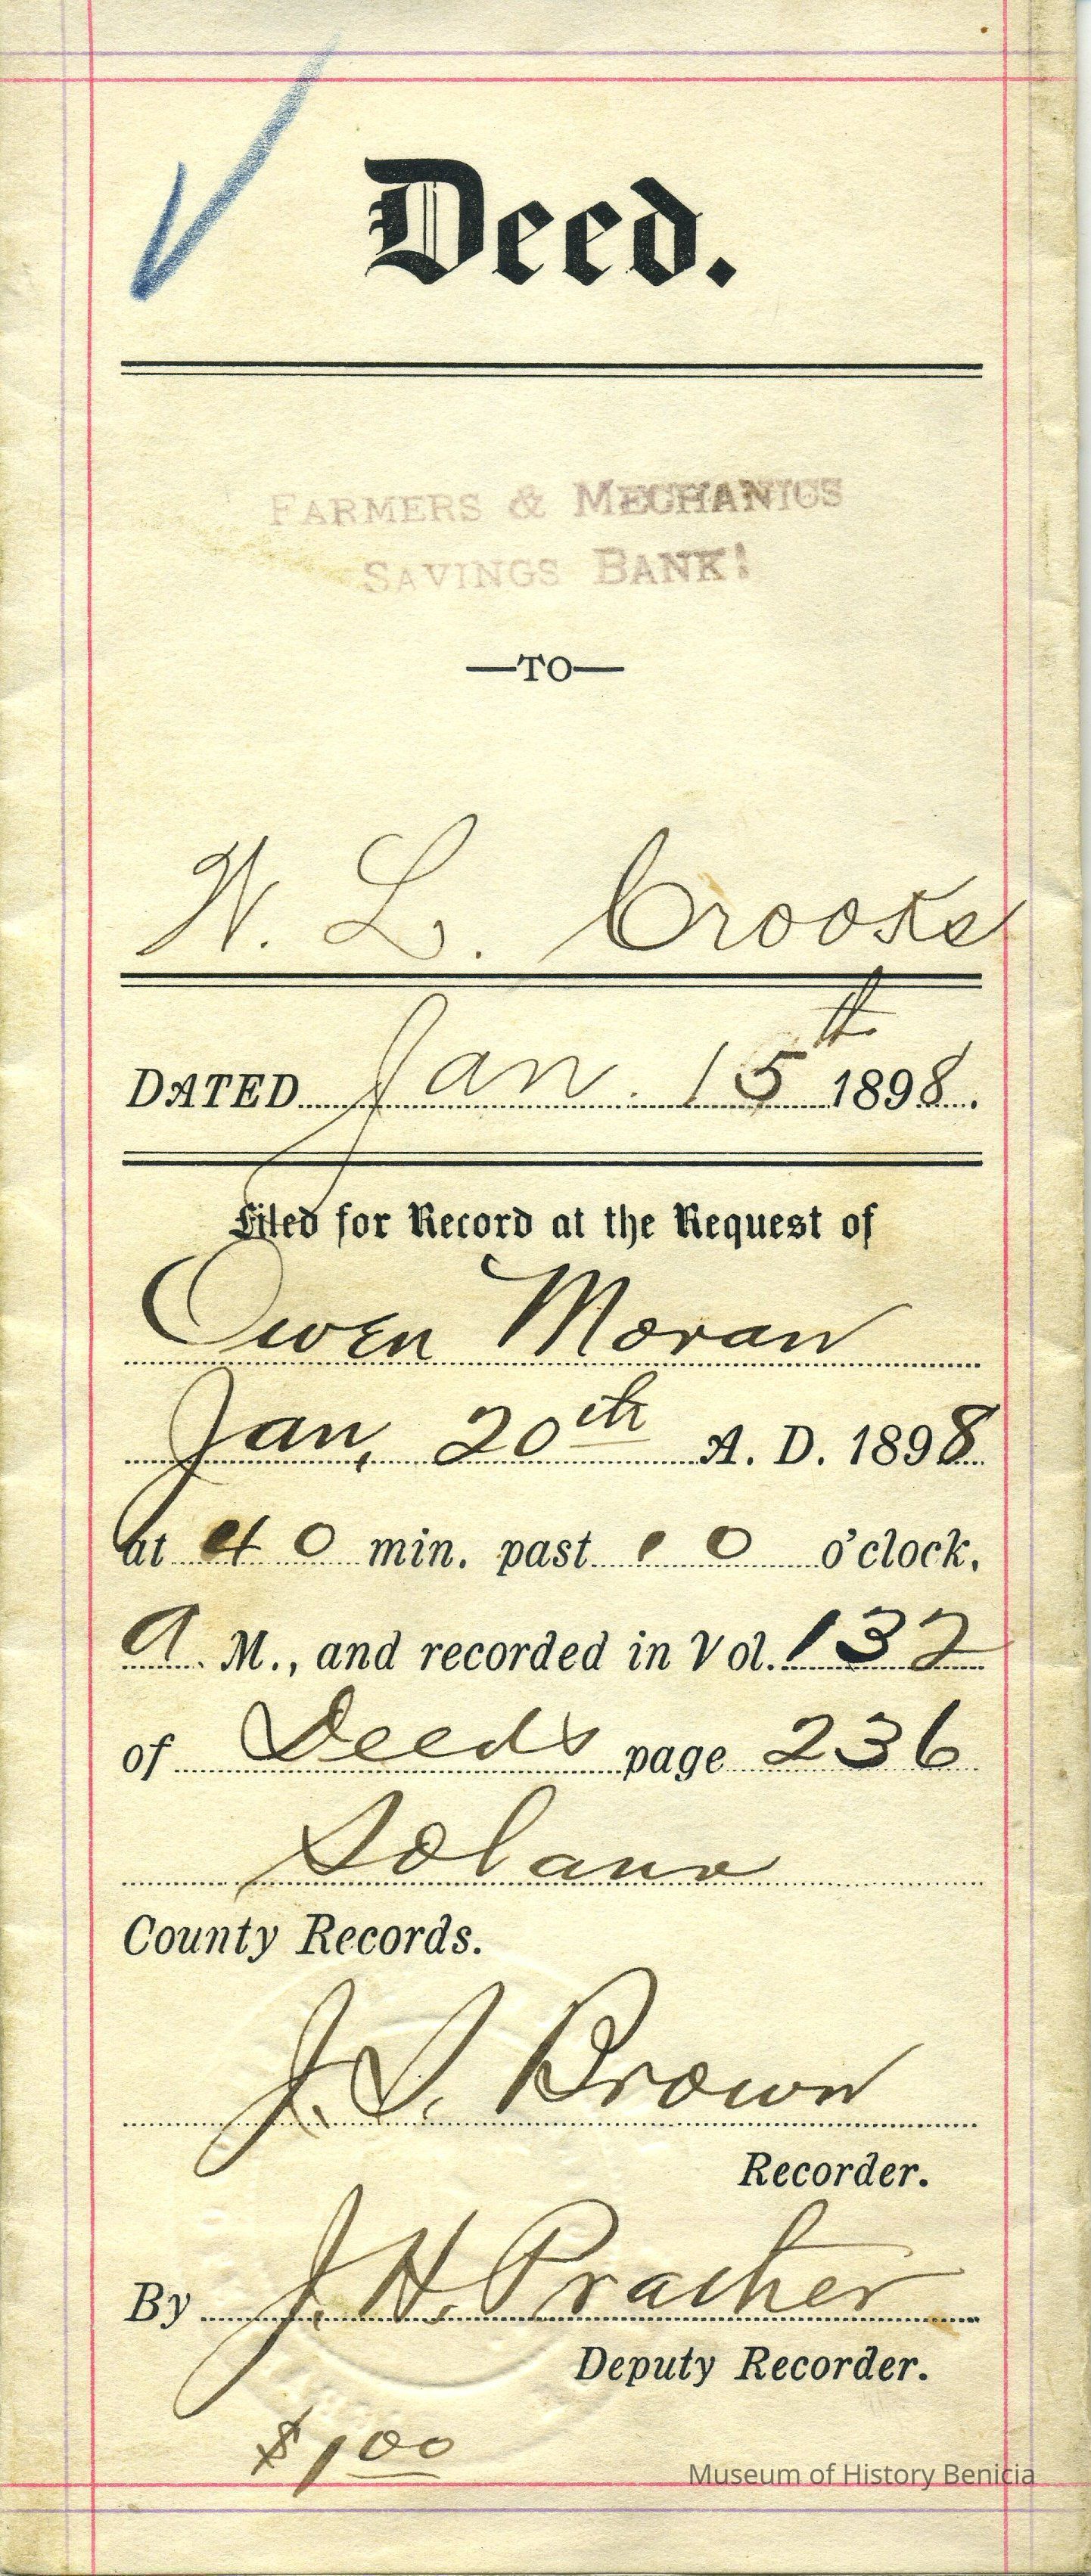 Deed.
FARMERS & MECHANICS
SAVINGS BANK!
—TO—
W. L. Crooks
DATED Jan. 15th 1898.
Filed for Record at the Request of
Owen Moran
Jan, 20th A. D. 1898
at 40 min. past 10 o'clock,
A. M., and recorded in Vol. 132
of Deeds page 236
Solano
County Records.
J. S. Brown
Recorder.
By J. H. Prather
Deputy Recorder.
$1 00
Museum of History Benicia